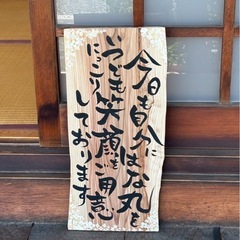 今日も自分に
はな丸を
いつでも笑顔をご用意
にっこり
しております